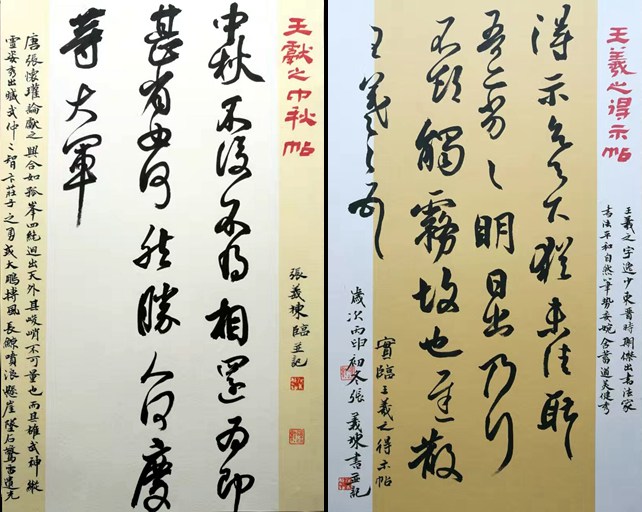 王羲之得示帖
王羲之字逸少東晉時期傑出書法家
書法平和自然筆勢委婉含蓄遒美健秀
得示知足下猶未佳耿
吾亦劣劣明日出乃行
不欲觸霧故也遲散
王羲之頓
實臨王羲之得示帖
歲次丙申初冬張義棟書並記
王獻之中秋帖
張義棟臨並記
中秋不復不得相還為即
甚省如何然勝人何慶
等大軍
唐張懷瓘論獻之興合如孤峯四絕迥出天外其峻峭不可量也而且雄武神縱
靈姿秀出臧武仲之智卞莊子之勇或大鵬摶風長鯨噴浪懸崖墜石驚雷遺光